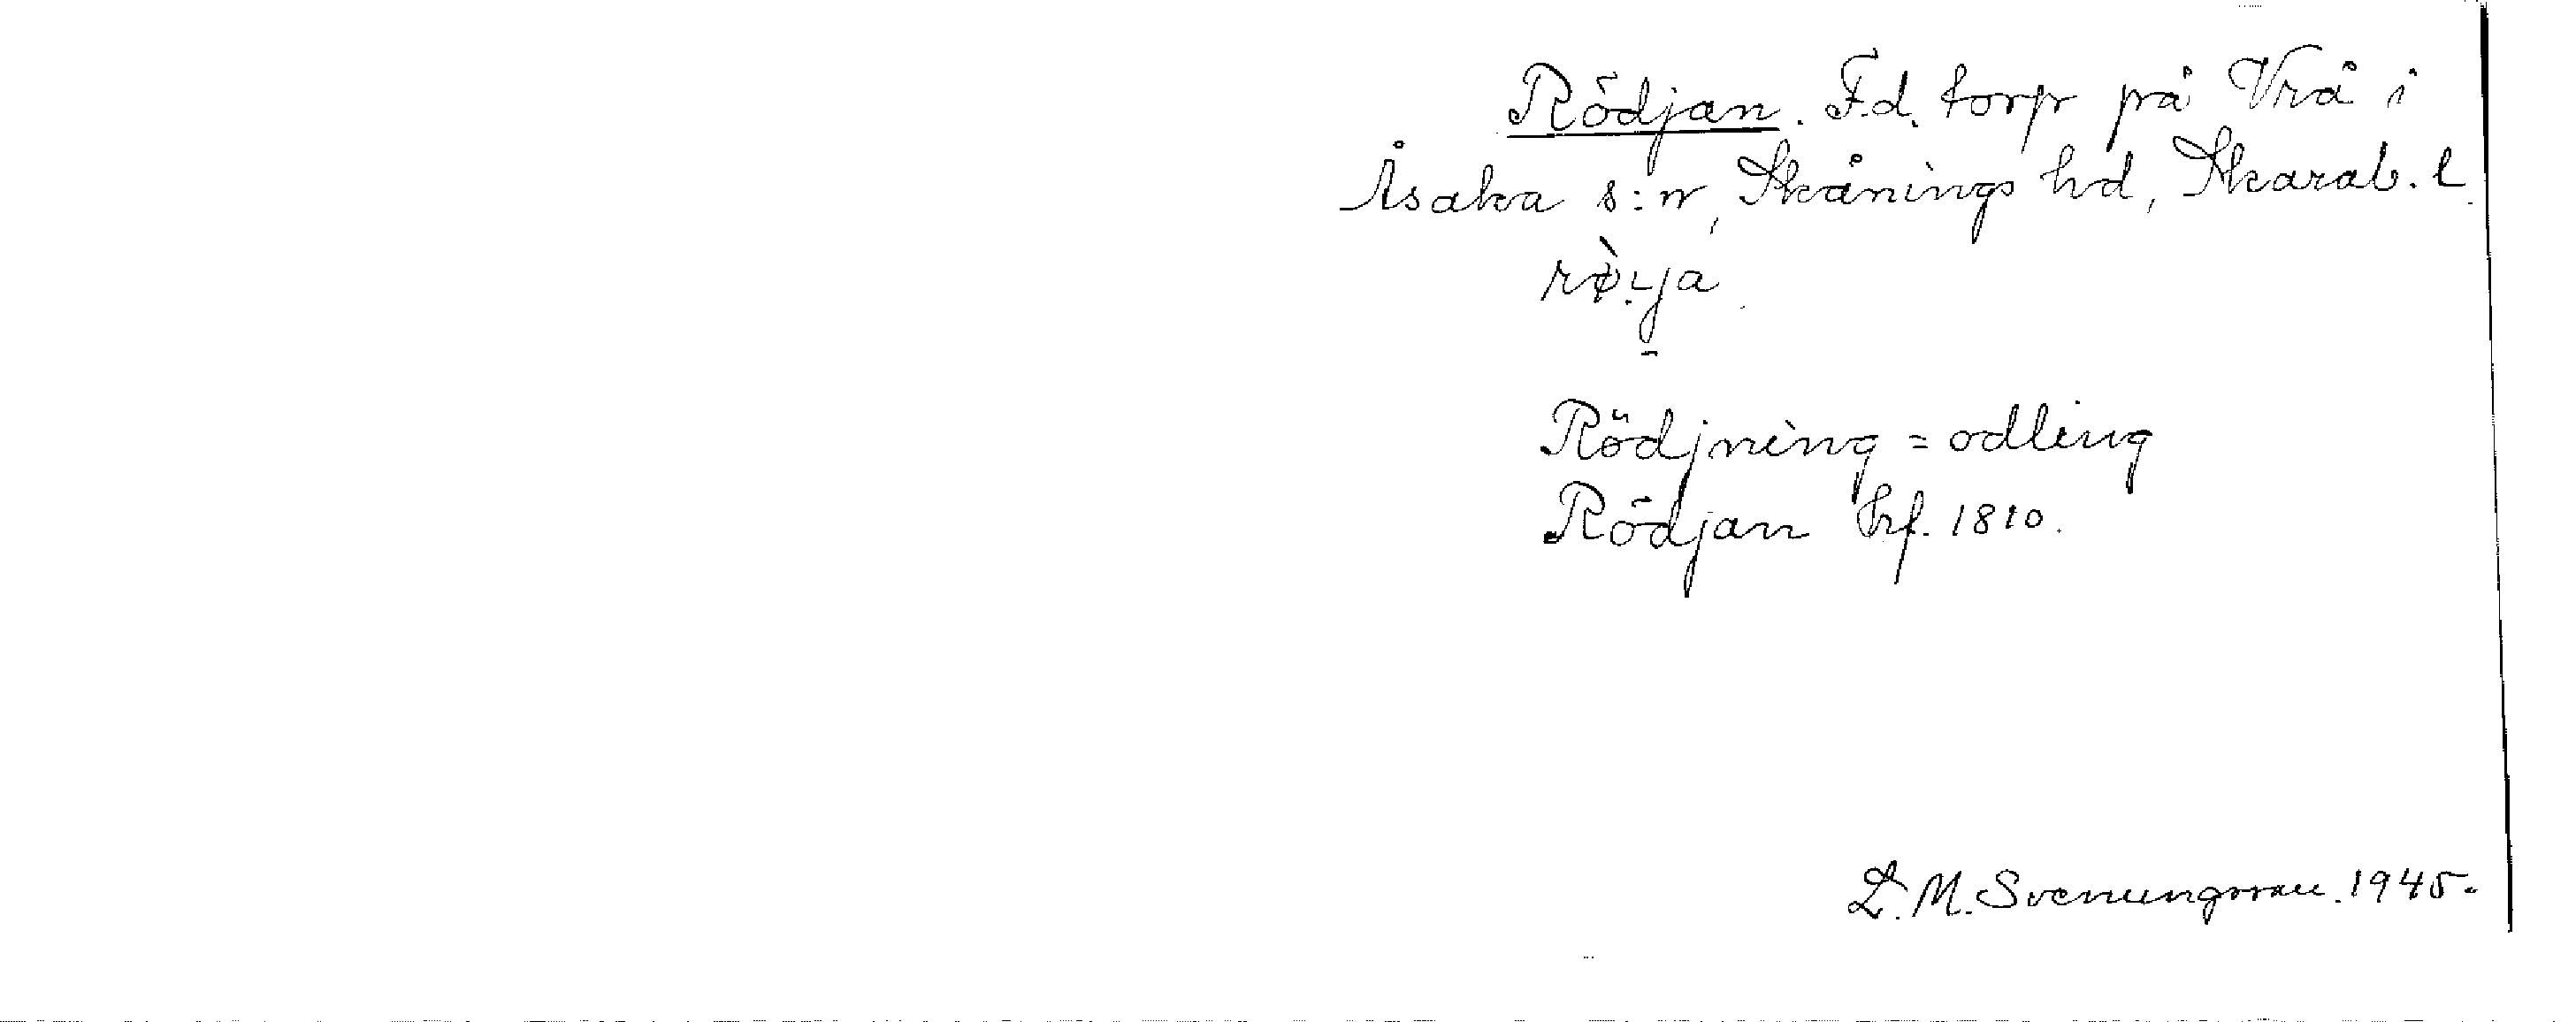 Rödjan. F.d. torp på Vrå i
Åsaka s:n, Skånings hd, Skarab. l.
rø̀.ya
Rödjning = odling
Rödjan hrf. 1810.
L. M. Svenungsson. 1945.